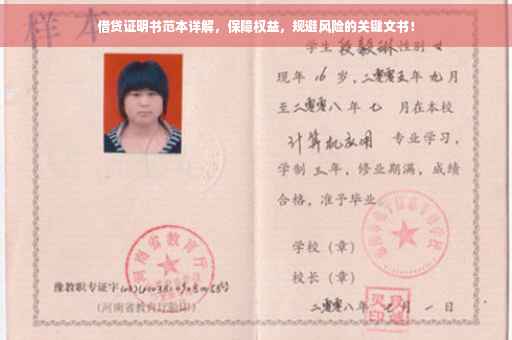 借贷证明书范本详解，保障权益，规避风险的关键文书！
样本
学生段毅琳性别女
现年16岁，二零零五年九月
至二零零八年七月在本校
计算机应用 专业学习，
学制三年，修业期满，成绩
合格，准予毕业。
学校（章）
校长（章）
二零零八年 月一日
河南省教育厅
豫教职专证字
（河南省教育厅验印）